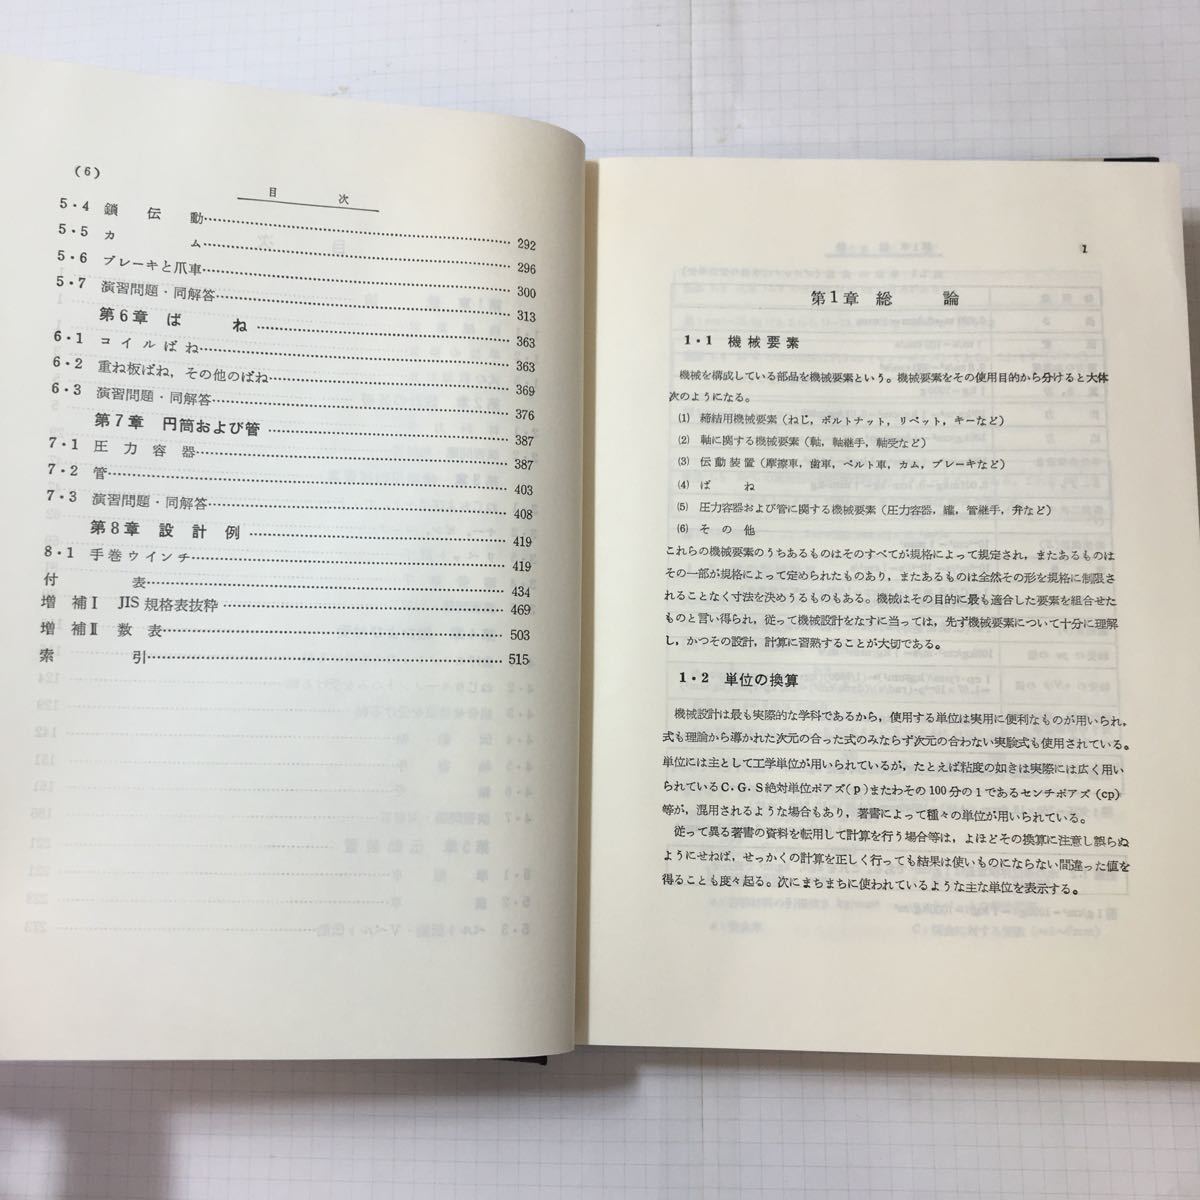 (6)
目 次
5・4 鎖 伝 動 292
5・5 カ ム 296
5・6 ブレーキと爪車 300
5・7 演習問題・同解答 313
第6章 ば ね 363
6・1 コイルばね 363
6・2 重ね板ばね,その他のばね 369
6・3 演習問題・同解答 376
第7章 円筒および管 387
7・1 圧力容器 387
7・2 管 403
7・3 演習問題・同解答 408
第8章 設計例 419
8・1 手巻ウインチ 419
付 表 434
増 補Ⅰ JIS規格表抜粋 469
増 補Ⅱ 数表 503
索 引 515
1
第1章 総 論
1・1 機械要素
機械を構成している部品を機械要素という。機械要素をその使用目的から分けると大体
次のようになる。
(1) 締結用機械要素(ねじ,ボルトナット,リベット,キーなど)
(2) 軸に関する機械要素(軸,軸継手,軸受など)
(3) 伝動装置(摩擦車,歯車,ベルト車,カム,ブレーキなど)
(4) ば ね
(5) 圧力容器および管に関する機械要素(圧力容器,罐,管継手,弁など)
(6) そ の 他
これらの機械要素のうちあるものはそのすべてが規格によって規定され,またあるものは
その一部が規格によって定められたものあり,またあるものは全然その形を規格に制限さ
れることなく寸法を決めうるものもある。機械はその目的に最も適合した要素を組合せた
ものと言い得られ,従って機械設計をなすに当っては,先ず機械要素について十分に理解
し,かつその設計,計算に習熟することが大切である。
1・2 単位の換算
機械設計は最も実際的な学科であるから,使用する単位は実用に便利なものが用いられ,
式も理論から導かれた次元の合った式のみならず次元の合わない実験式も使用されている。
単位には主として工学単位が用いられているが,たとえば粘度の如きは実際には広く用い
られているC.G.S絶対単位ポアズ(p)またわその100分の1であるセンチポアズ(cp)
等が,混用されるような場合もあり,著書によって種々の単位が用いられている。
従って異る著書の資料を転用して計算を行う場合等は,よほどその換算に注意し誤らぬ
ようにせねば,せっかくの計算を正しく行っても結果は使いものにならない間違った値を
得ることも度々起る。次にまちまちに使われているような主な単位を表示する。